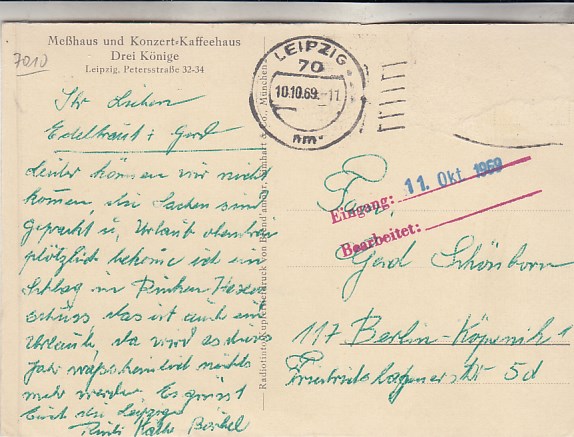 7010
Meßhaus und Konzert-Kaffeehaus
Drei Könige
Leipzig, Petersstraße 32-34
Ihr Lieben
Edeltraut u Gerd
Leider können wir nicht
kommen, die Sachen sind
gepackt u. Urlaub
plötzlich bekome ich ein
Schlag im Rücken Hexen
schuss das ist auch ein
Urlaub, da wird es dieses
Jahr wahscheinlich nichts
mehr werden Es grüsst
Euch die Leipziger
Käthe
Radiotintokupfertiefdruck von Brend'amour, Simhart & Co., München
LEIPZIG
70
10.10.69.-11
nm
Eingang: 11. Okt. 1969
Bearbeitet:
Fam.
Gerd Schönborn
117 Berlin-Köpenik 1
Friedrichshagenerstr 5d